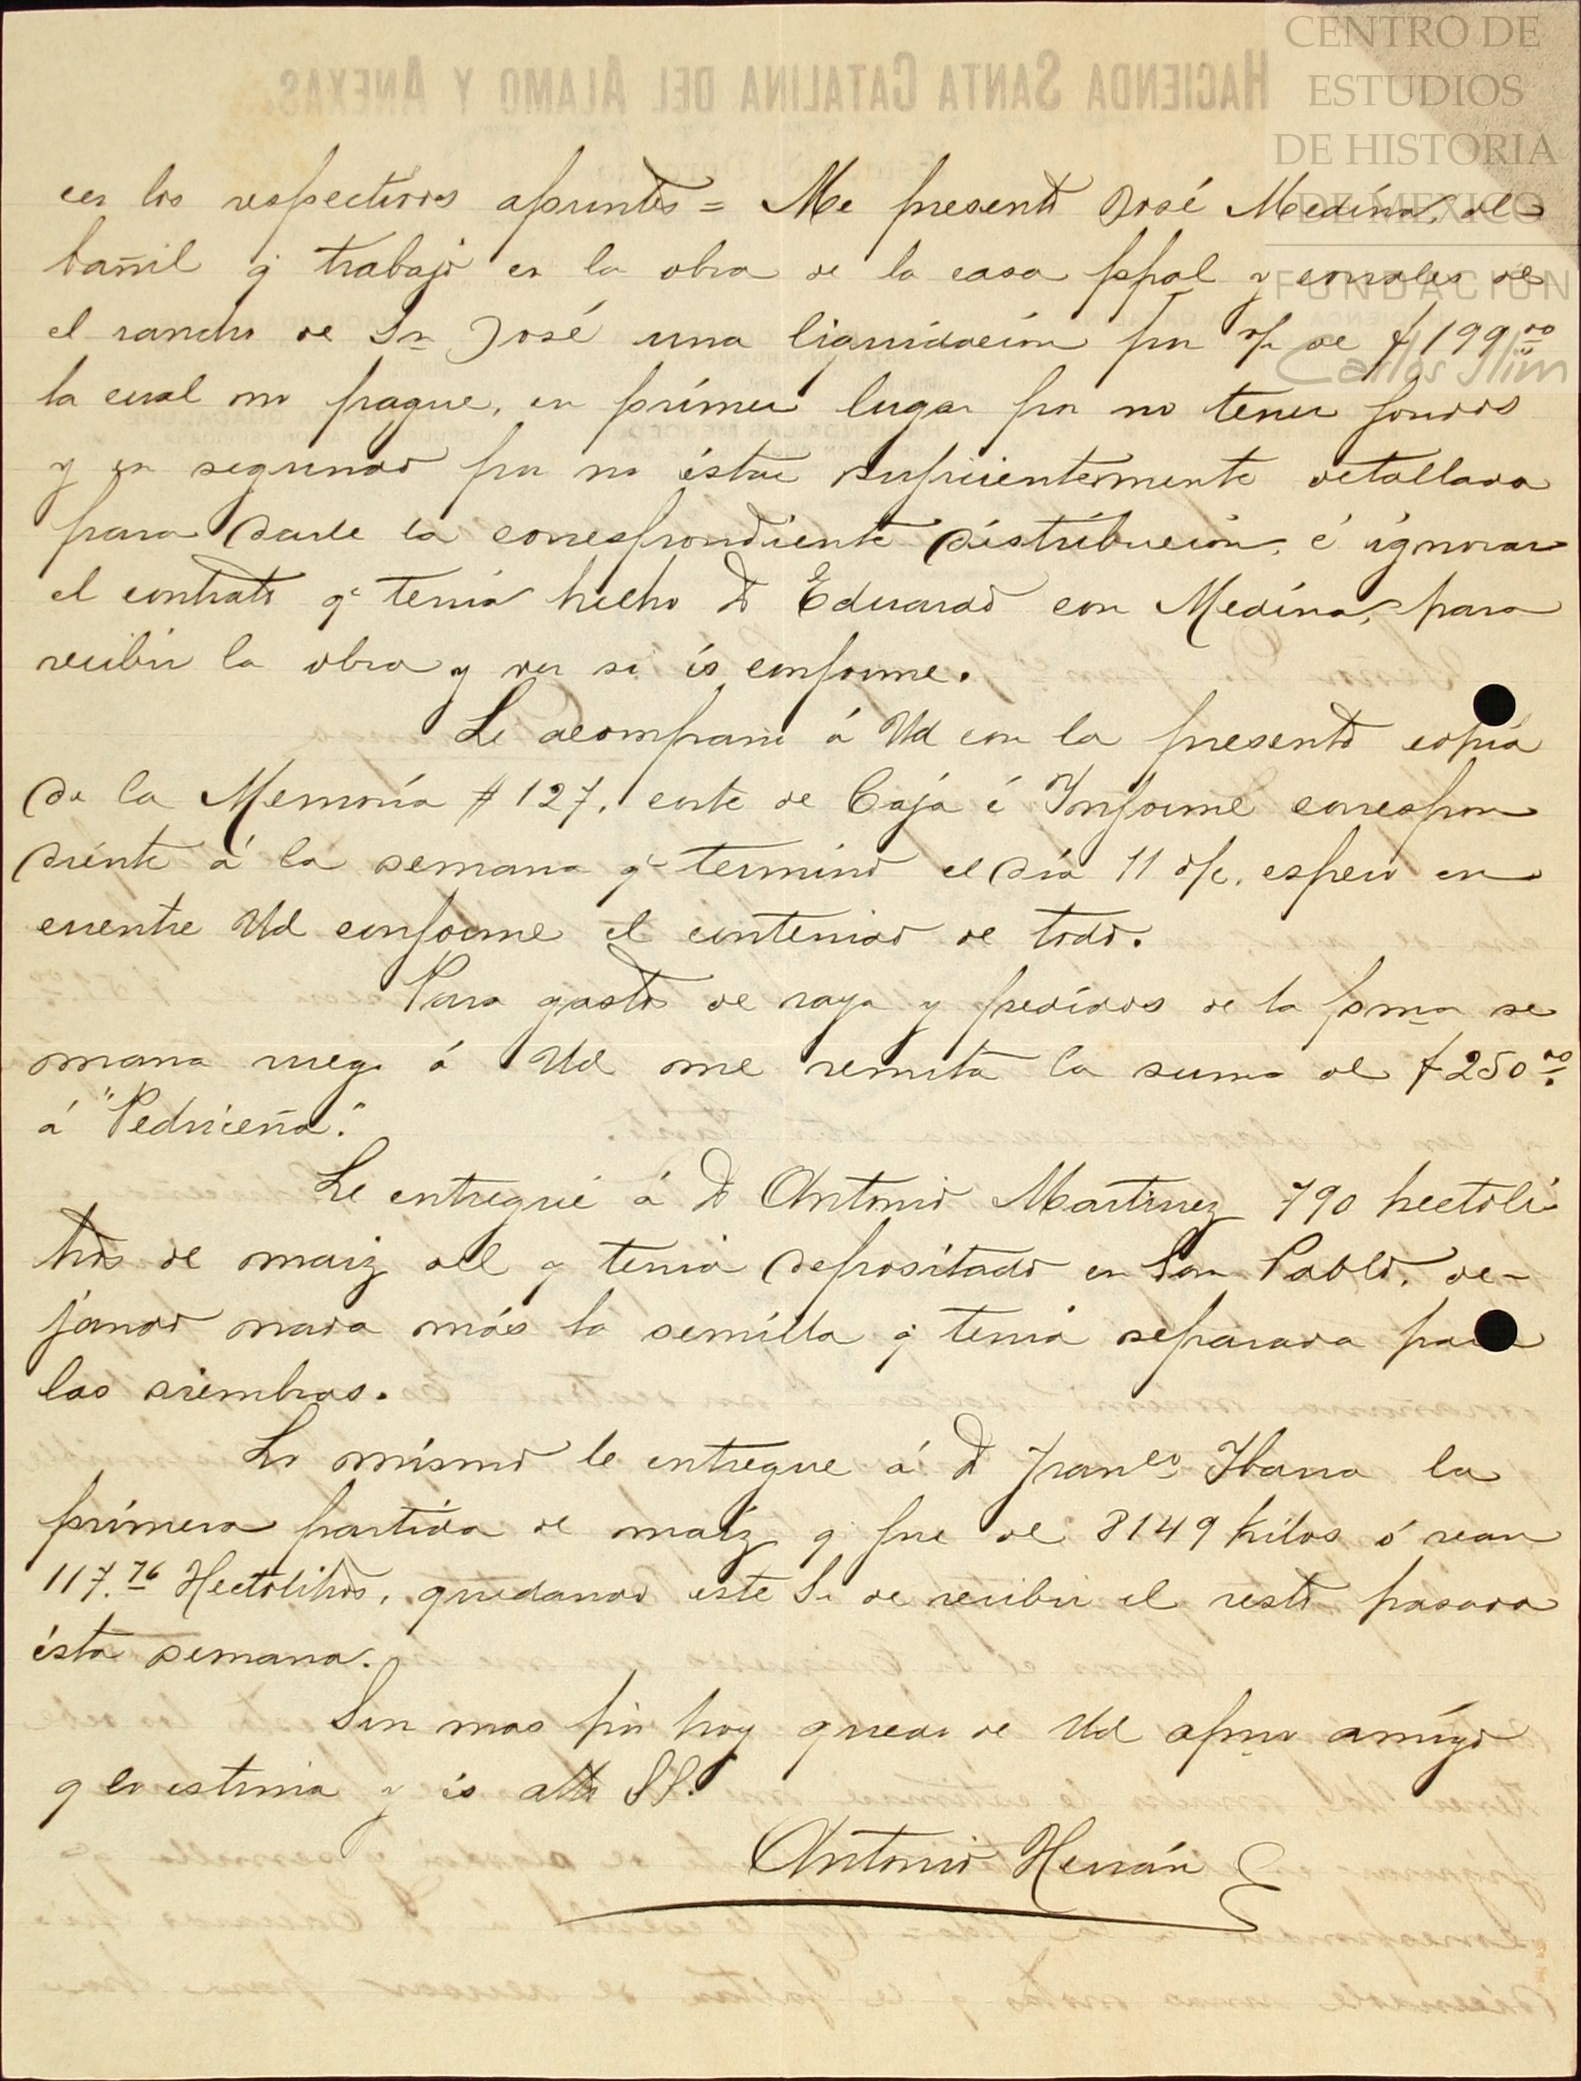 CENTRO DE
ESTUDIOS
DE HISTORIA
DE MEXICO
FUNDACIÓN
Carlos Slim
HACIENDA SANTA CATALINA DEL ALAMO Y ANEXAS.
cer los respectivos apuntes = Me presentó José Medina, al-
bañil q trabajó en la obra de la casa ppal y corrales de
el rancho de Sn José una liquidación por v/. de $199.00
la cual no pague, en primer lugar por no tener fondos
y en segundo por no éstar suficientemente detallada
para darle la correspondiente distribución, é ignorar
el contrato qe tenia hecho D Eduardo con Medina, para
recibir la obra y ver si és conforme.
Le acompaño á Ud con la presente copia
de la Memoria # 127, corte de Caja é Informe correspon
diente á la semana qe terminó el día 11 d/c. espero en
cuentre Ud conforme el contenido de todo.
Para gastos de raya y pedidos de la pma se
mana ruego á Ud me remita la suma de $250.00
á "Pedriceña".
Le entregué á D Antonio Martinez 790 hectoli-
tros de maiz del q tenia depositado en San Pablo, de-
jando nada más la semilla q tenia separada para
las siembras.
Lo mismo le entregue á D Franco Ibarra la
primera partida de maíz q fue de 8149 kilos ó sean
117.76 Hectolitros, quedando este Sr de recibir el resto pasada
ésta semana.
Sin mas por hoy quedo de Ud afmo amígo
q lo estima y és atto SS.
Antonio Herrán